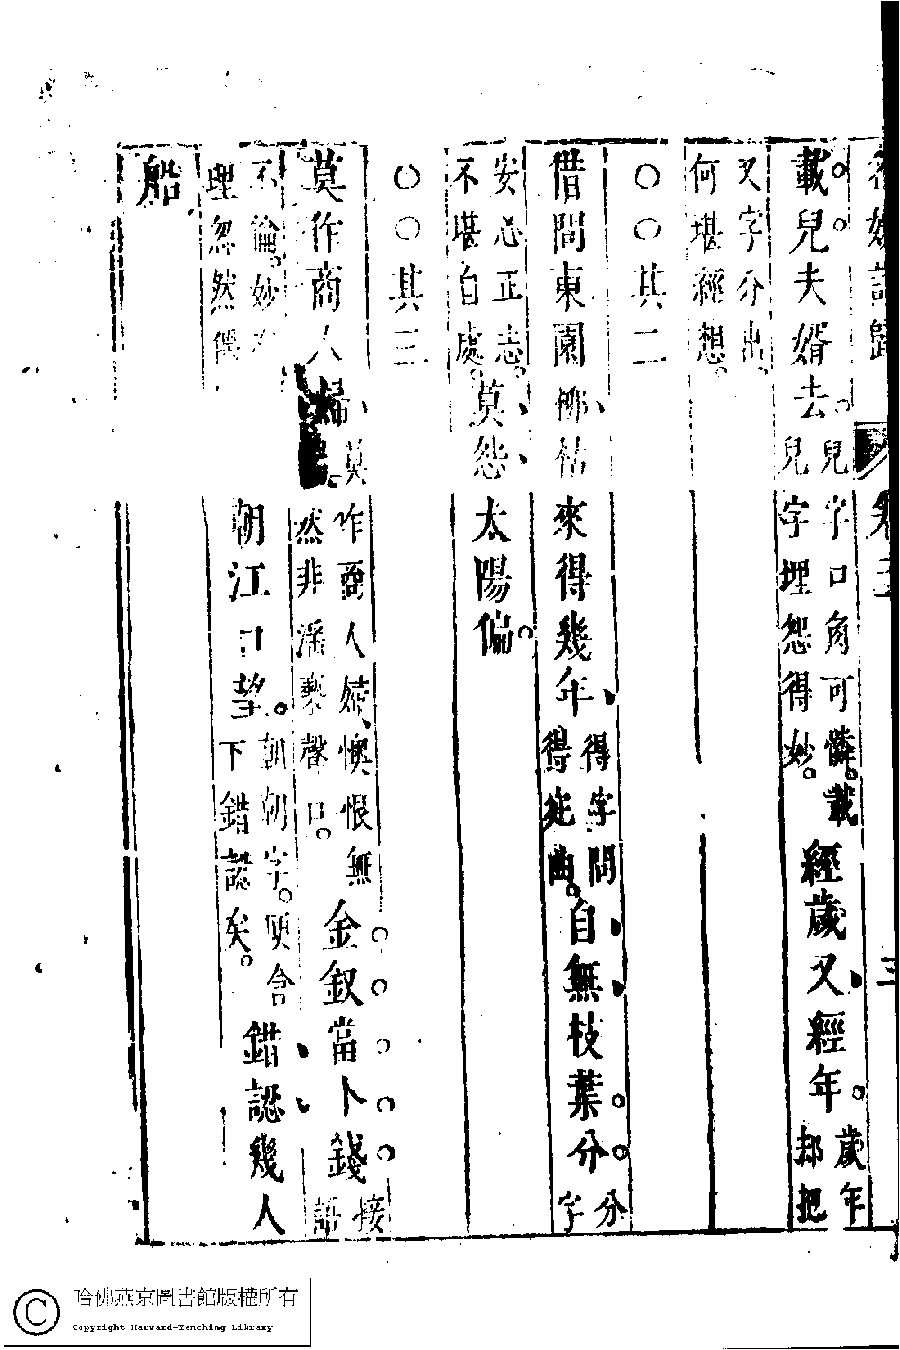 媛詩歸 卷三 三
載兒夫婿去。兒字口角可憐。載
兒字埋怨得妙。經歲又經年。歲年
却把
又字分出。
何堪經想。
○○其二
借問東園柳枯來得幾年得字問
得定曲。自無枝葉分。分
字
安心正志。
不堪自處。莫怨太陽偏。
○○其三
莫作商人婦莫作商人婦懊恨無
然非淫褻聲口。金釵當卜錢接
語
不倫。妙
理忽然 朝江口望。朝朝字。便含
下錯認矣。錯認幾人
船
哈佛燕京圖書館版權所有
Copyright Harvard-Yenching Library